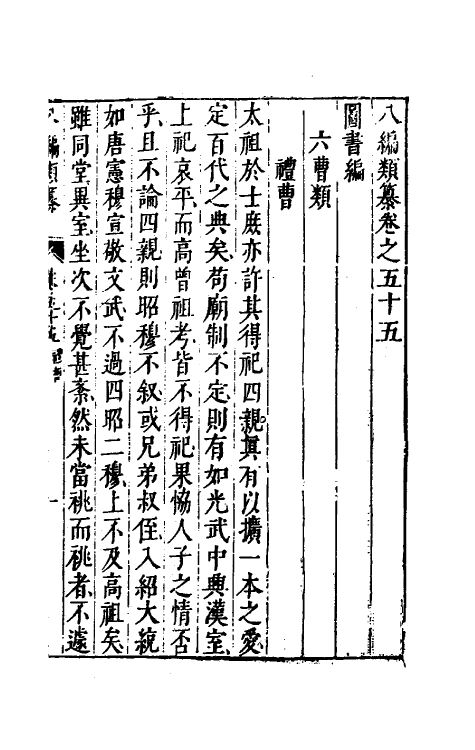 八編類纂卷之五十五
圖書編
六曹類
禮曹
太祖於士庶亦許其得祀四親真有以擴一本之愛
定百代之典矣苟廟制不定則有如光武中興漢室
上祀哀平而高曾祖考皆不得祀果恊人子之情否
乎且不論四親則昭穆不叙或兄弟叔侄入紹大統
如唐憲穆宣敬文武不過四昭二穆上不及高祖矣
雖同堂異室坐次不覺甚紊然未當祧而祧者不遽
編類纂
一